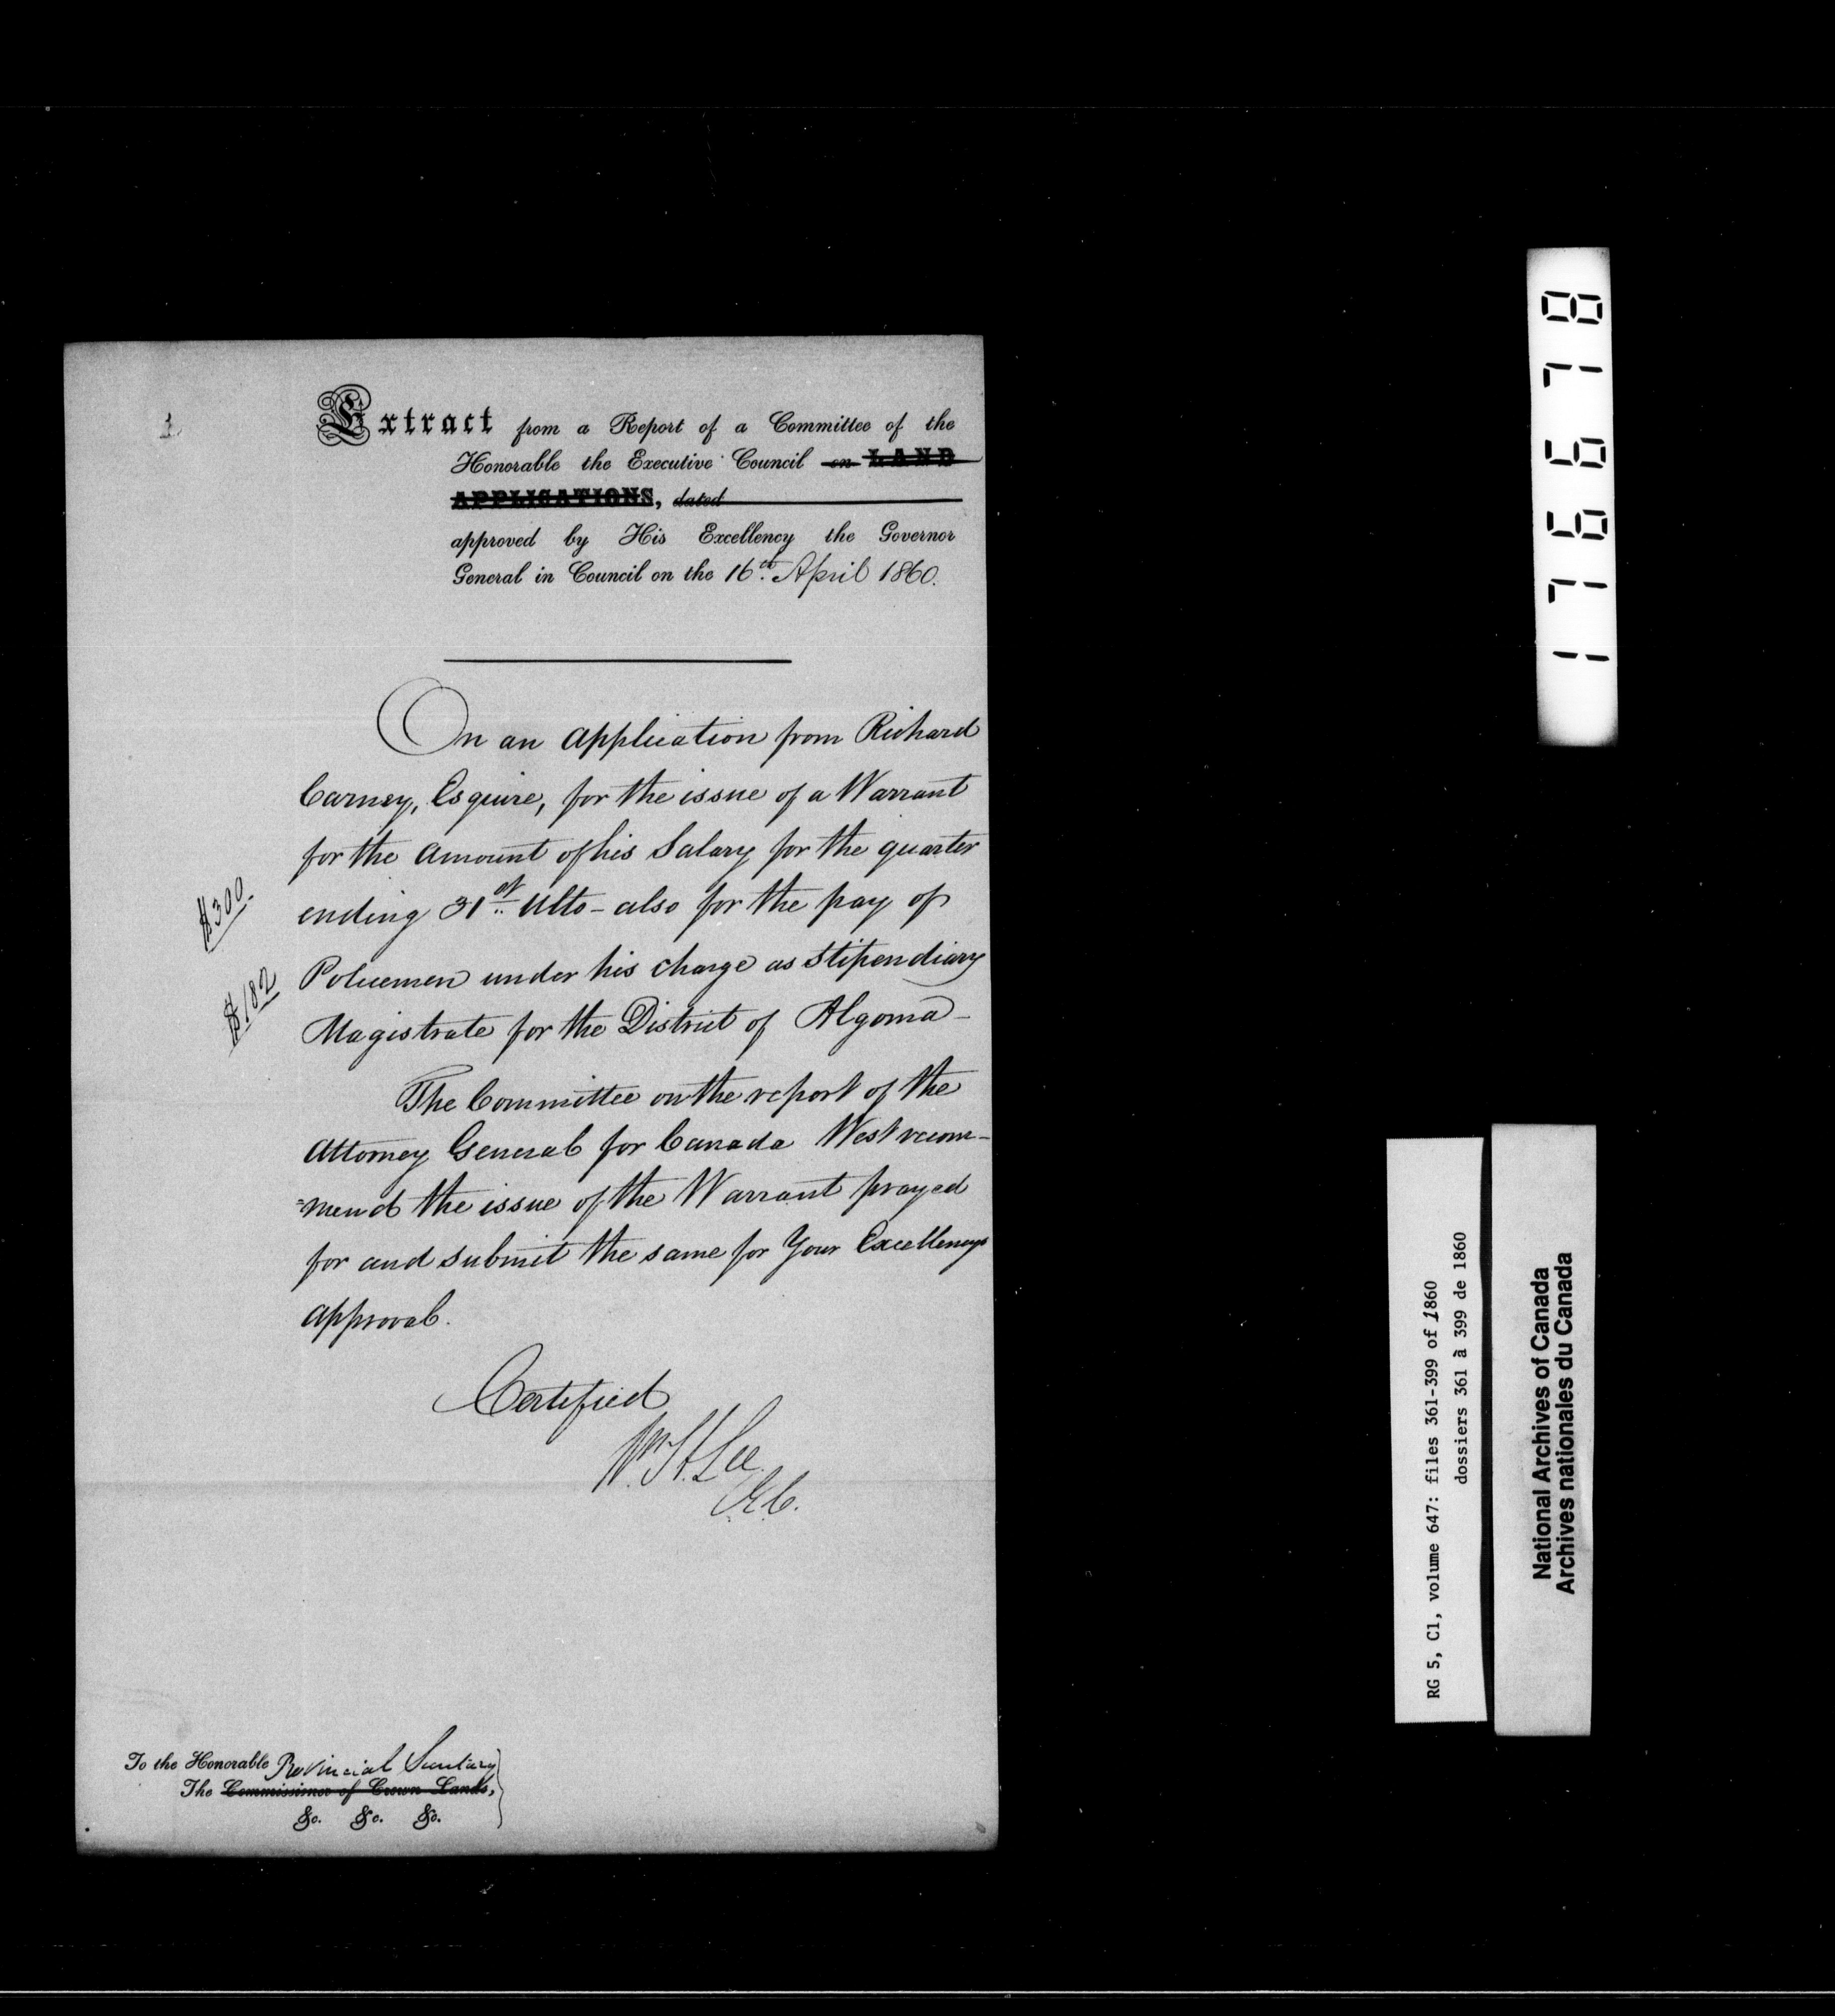 Extract from a Report of a Committee of the
Honorable the Executive Council on LAND
APPLICATIONS, dated
approved by His Excellency the Governor
General in Council on the 16th. April 1860.
On an application from Richard
Carney, Esquire, for the issue of a Warrant
for the amount of his Salary for the quarter
$300.
ending 31st Ulto - also for the pay of
Policemen under his charge as Stipendiary
$182
Magistrate for the District of Algoma -
The Committee on the report of the
Attorney General for Canada West recom-
=mend the issue of the Warrant prayed
for and submit the same for Your Excellencys
approval.
Certified
Wm. H. Lee
C.E.C.
To the Honorable Provincial Secretary
The Commissioner of Crown Lands,
&c. &c. &c.
176678
RG 5, C1, volume 647: files 361-399 of 1860
dossiers 361 à 399 de 1860
National Archives of Canada
Archives nationales du Canada